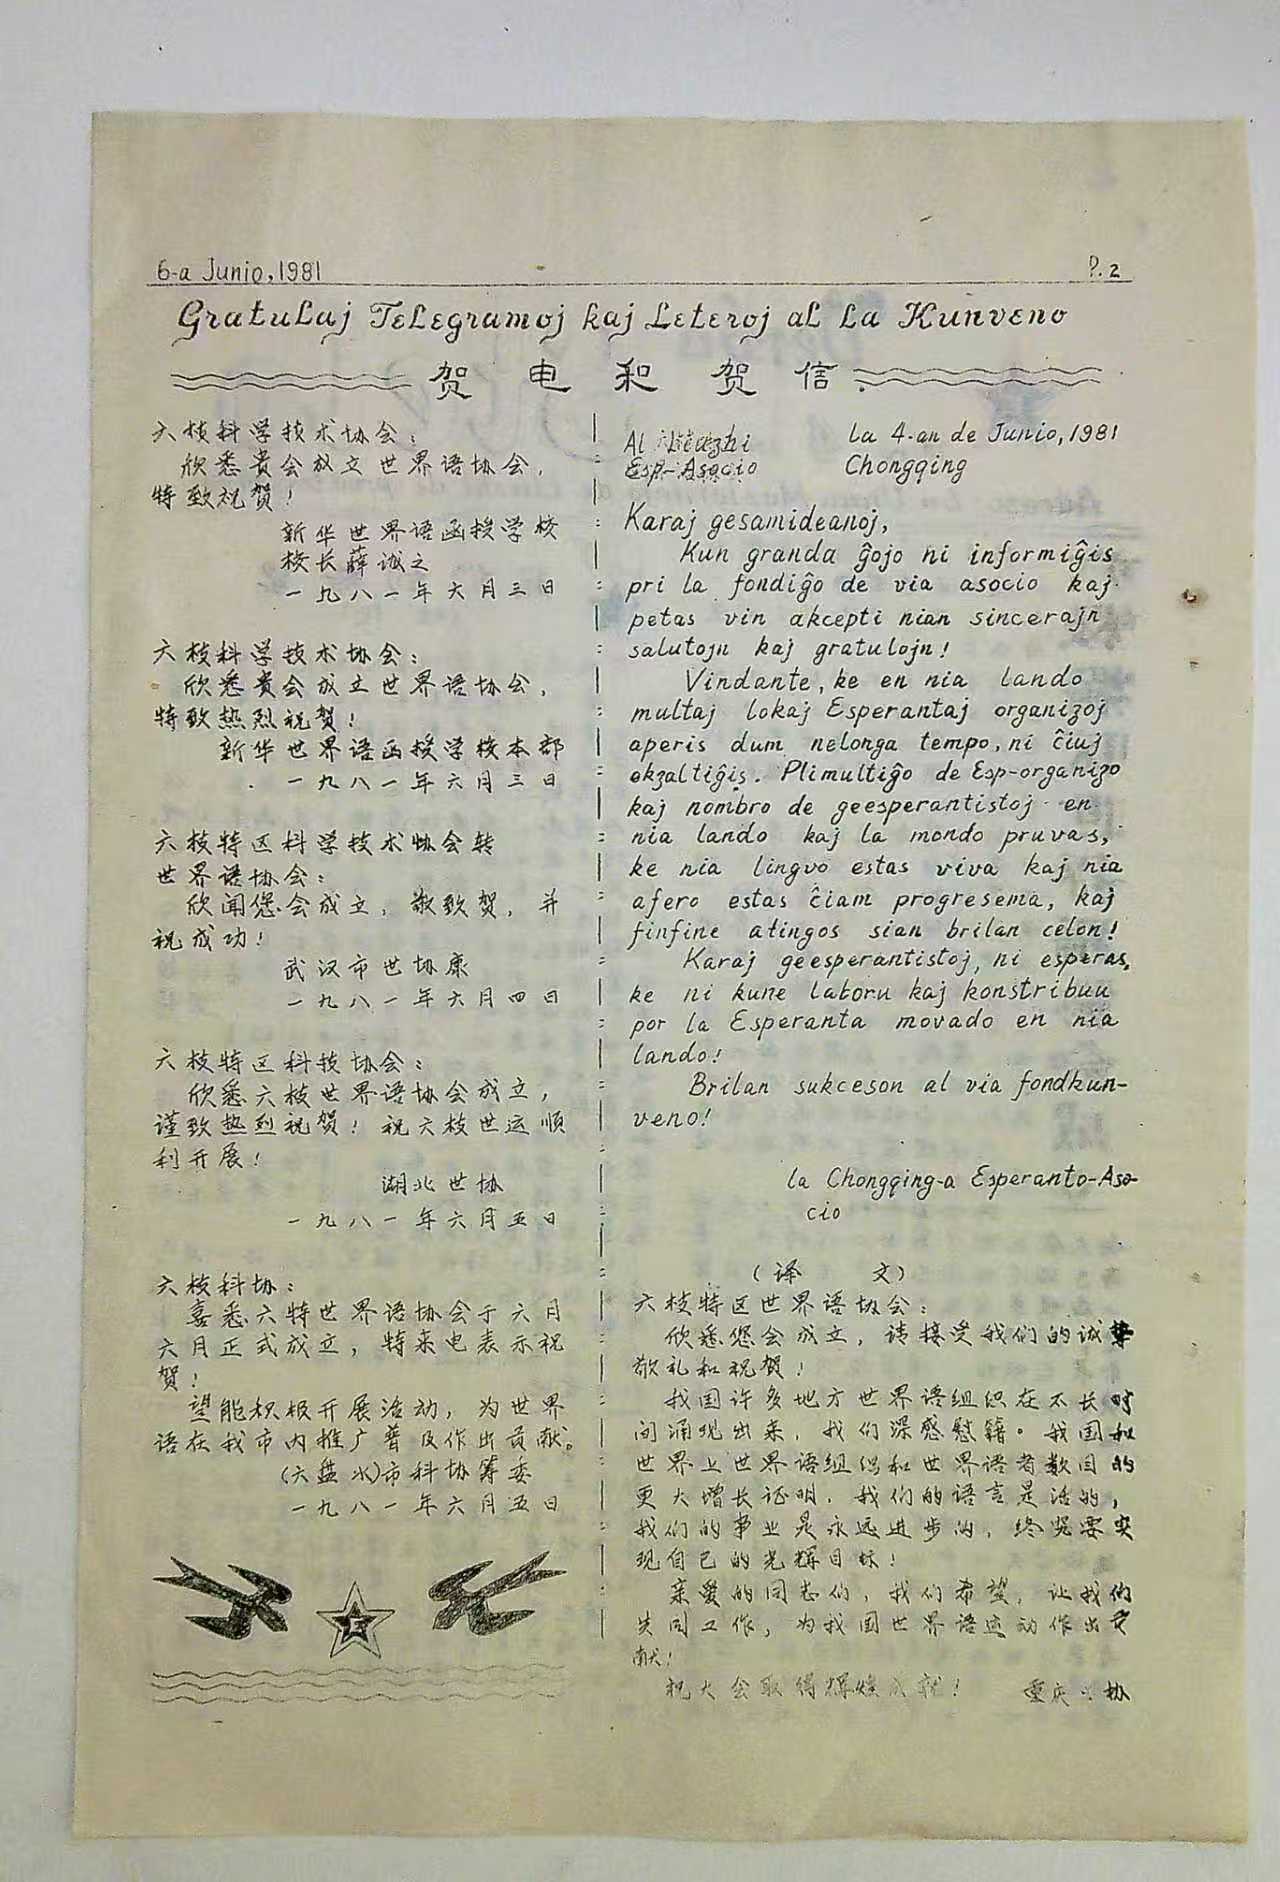 6-a Junio, 1981
P. 2
Gratulaj Telegramoj kaj Leteroj al la Kunveno
贺电和贺信
六枝科学技术协会：
欣悉贵会成立世界语协会，
特致祝贺！
新华世界语函授学校
校长薛诚之
一九八一年六月三日
六枝科学技术协会：
欣悉贵会成立世界语协会，
特致热烈祝贺！
新华世界语函授学校本部
一九八一年六月三日
六枝特区科学技术协会转
世界语协会：
欣闻您会成立，敬致贺，并
祝成功！
武汉市世协康
一九八一年六月四日
六枝特区科技协会：
欣悉六枝世界语协会成立，
谨致热烈祝贺！祝六枝世运顺
利开展！
湖北世协
一九八一年六月五日
六枝科协：
喜悉六特世界语协会于六月
六月正式成立，特来电表示祝
贺！
望能积极开展活动，为世界
语在我市内推广普及作出贡献。
(六盘水)市科协筹委
一九八一年六月五日
E
Al Liuzhi
Esp-Asocio
la 4-an de Junio, 1981
Chongqing
Karaj gesamideanoj,
Kun granda ĝojo ni informiĝis
pri la fondiĝo de via asocio kaj
petas vin akcepti nian sincerajn
salutojn kaj gratulojn!
Vindante, ke en nia lando
multaj lokaj Esperantaj organizoj
aperis dum nelonga tempo, ni ĉiuj
ekzaltiĝis. Plimultiĝo de Esp-organizo
kaj nombro de geesperantistoj en
nia lando kaj la mondo pruvas,
ke nia lingvo estas viva kaj nia
afero estas ĉiam progresema, kaj
finfine atingos sian brilan celon!
Karaj geesperantistoj, ni esperas,
ke ni kune laboru kaj konstribuu
por la Esperanta movado en nia
lando!
Brilan sukceson al via fondkun-
veno!
la Chongqing-a Esperanto-Aso-
cio
(译 文)
六枝特区世界语协会：
欣悉您会成立，请接受我们的诚挚
敬礼和祝贺！
我国许多地方世界语组织在不长时
间涌现出来，我们深感慰籍。我国和
世界上世界语组织和世界语者数目的
更大增长证明，我们的语言是活的，
我们的事业是永远进步的，终究要实
现自己的光辉目标！
亲爱的同志们，我们希望，让我们
共同工作，为我国世界语运动作出贡
献！
祝大会取得辉煌成就！
重庆 协